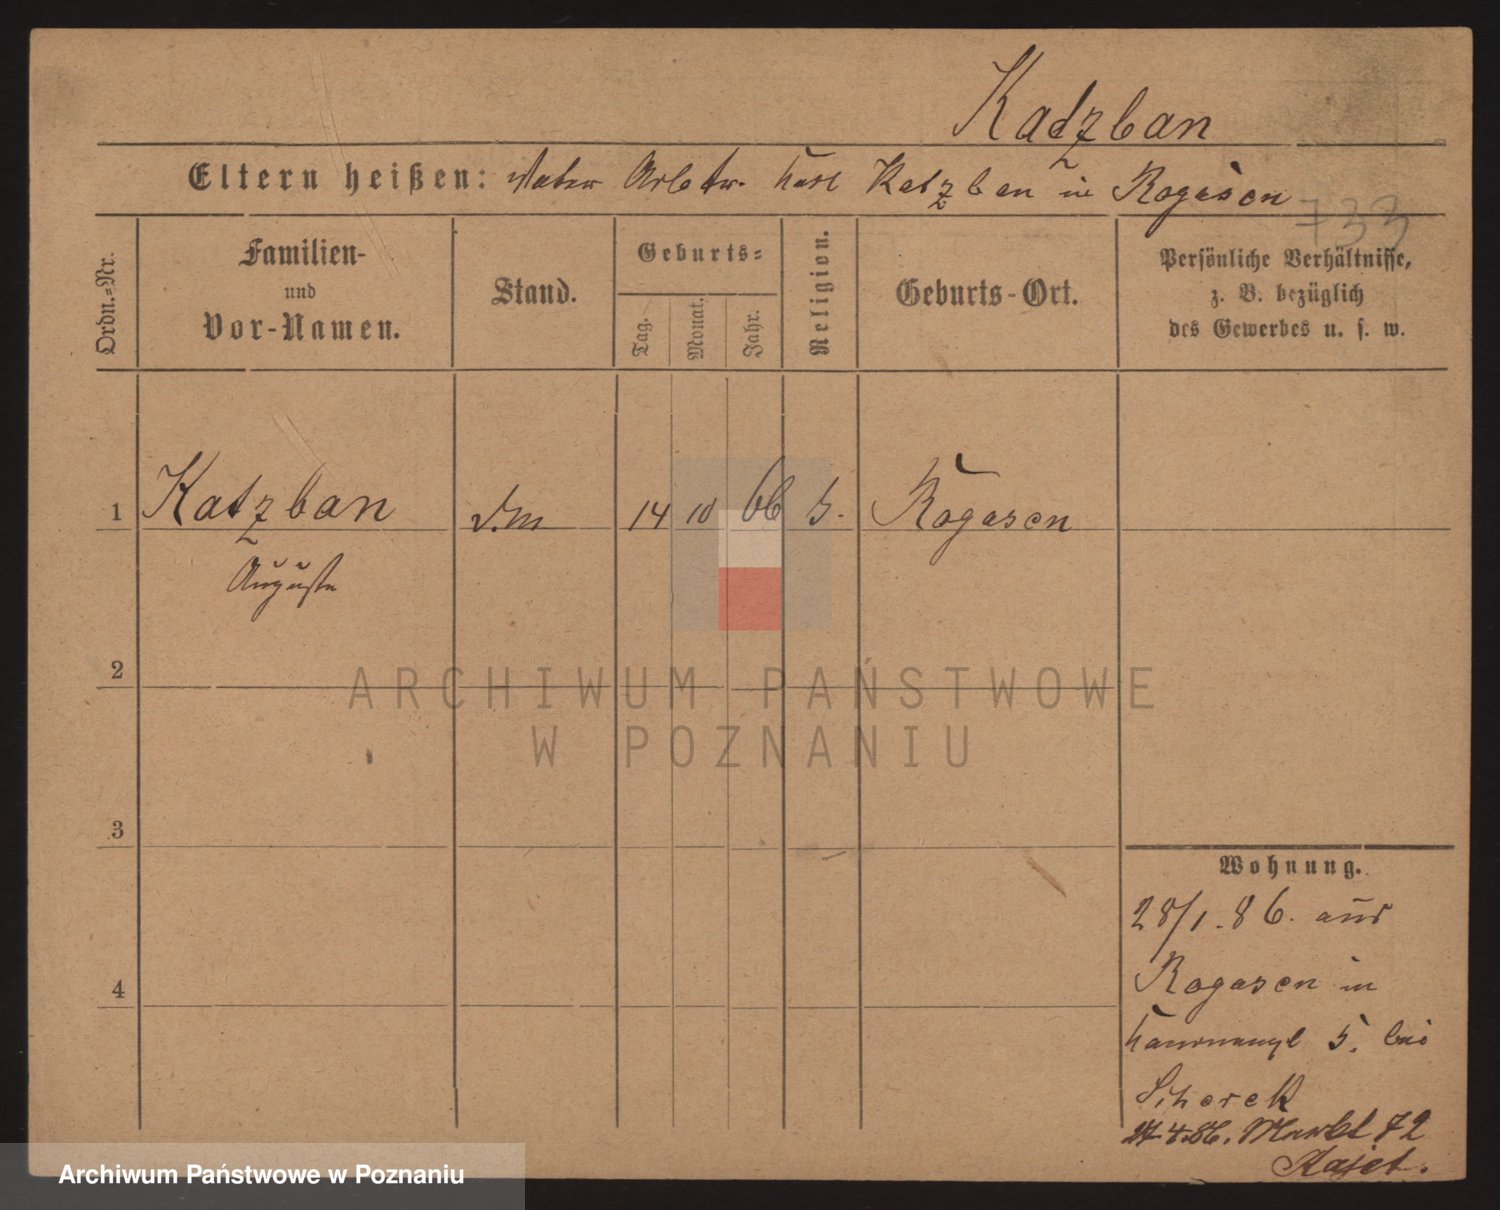 Katzban
Eltern heißen: Vater Arbeitr. Karl Katzban in Rogasen
733
Ordn.=Nr.
Familien-
und
Vor-Namen.
Stand.
Geburts=
Tag.
Monat.
Jahr.
Religion.
Geburts-Ort.
Persönliche Verhältnisse,
z. B. bezüglich
des Gewerbes u. s. w.
1 Katzban 14 10 66 Rogasen
Auguste
2
ARCHIWUM PAŃSTWOWE
W POZNANIU
3
Wohnung.
28/1. 86. aus
4
Rogasen in
5. bei
Scherek
4.86. Markt 72
Kajet.
Archiwum Państwowe w Poznaniu